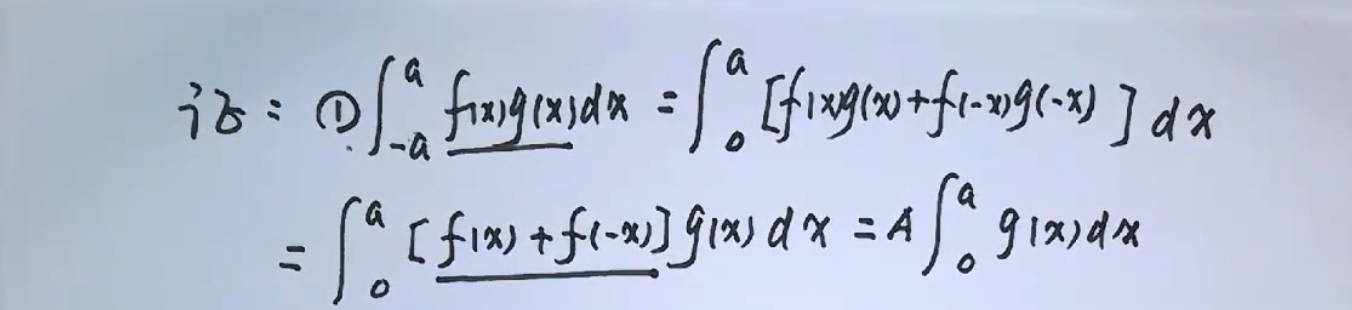 证: ①∫_{-a}^{a} f(x)g(x)dx = ∫_{0}^{a} [f(x)g(x)+f(-x)g(-x)] dx
= ∫_{0}^{a} [f(x)+f(-x)] g(x) dx = A∫_{0}^{a} g(x)dx